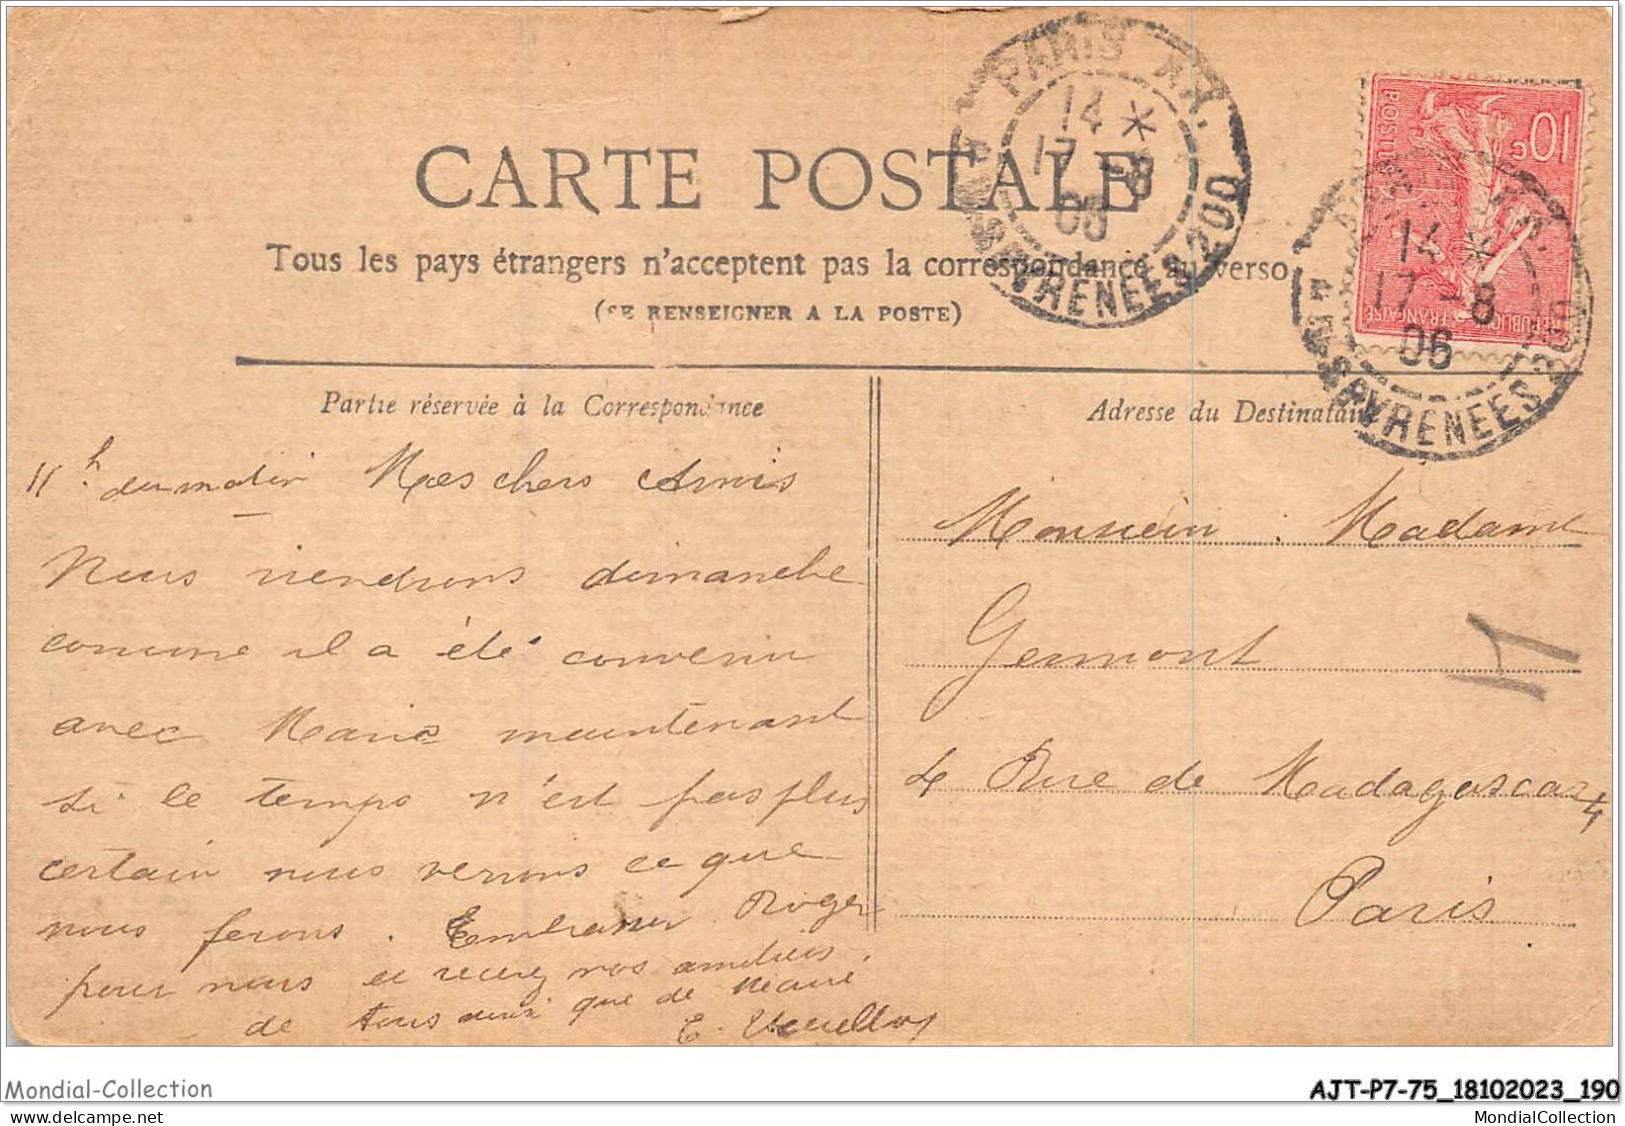 PARIS XX.
14 *
17 -8
06
R. DES PYRENEES 200
10c
POSTES
REPUBLIQUE FRANÇAISE
14 *
17 -8
06
R. DES PYRENEES 200
CARTE POSTALE
Tous les pays étrangers n'acceptent pas la correspondance au verso
(SE RENSEIGNER A LA POSTE)
Partie réservée à la Correspondance
Adresse du Destinataire
11h du matin Mes chers Amis
Nous viendrons dimanche
comme il a été convenu
avec Marie maintenant
si le temps n'est pas plus
certain nous verrons ce que
nous ferons. Embrasser Roger
pour nous et recevez nos amitiés.
de tous ainsi que de Marie
E.
Monsieur, Madame
Germont
4 Rue de Madagascar 4
Paris
Mondial-Collection
AJT-P7-75_18102023_190
MondialCollection